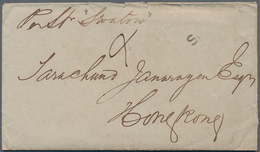 Per Str "Swatow"
S
Tarachund Janarayen Esqr
Hong Kong